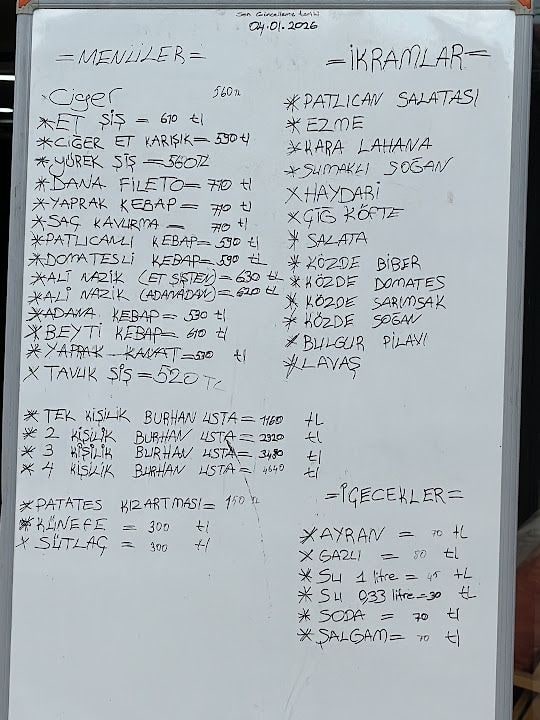 Son Güncelleme tarihi
04.01.2026
=MENÜLER=
*Ciğer 560 TL
*ET ŞİŞ = 610 tl
*CİĞER ET KARIŞIK=590 tl
*YÜREK ŞİŞ =560TL
*DANA FİLETO=710 tl
*YAPRAK KEBAP= 710 tl
*SAÇ KAVURMA= 710 tl
*PATLICANLI KEBAP=590 tl
*DOMATESLİ KEBAP=590 tl
*ALİ NAZİK (ET ŞİŞTEN)=630 tl
*ALİ NAZİK (ADANADAN)=620 tl
*ADANA KEBAP= 590 tl
*BEYTİ KEBAP= 610 tl
*YAPRAK KANAT=590 tl
X TAVUK ŞİŞ=520 TL
* TEK KİŞİLİK BURHAN USTA= 1160 tL
* 2 KİŞİLİK BURHAN USTA= 2320 tl
* 3 KİŞİLİK BURHAN USTA= 3480 tl
* 4 KİŞİLİK BURHAN USTA= 4640 tl
*PATATES KIZARTMASI= 150 TL
*KÜNEFE = 300 tl
X SÜTLAÇ = 300 tl
=İKRAMLAR=
*PATLICAN SALATASI
*EZME
*KARA LAHANA
*SUMAKLI SOĞAN
XHAYDARİ
XÇİĞ KÖFTE
* SALATA
*KÖZDE BİBER
*KÖZDE DOMATES
*KÖZDE SARIMSAK
*KÖZDE SOĞAN
*BULGUR PİLAVI
*LAVAŞ
=İÇECEKLER=
*AYRAN = 70 tL
*GAZLI = 80 tl
*SU 1 litre = 45 tL
*SU 0,33 litre=30 tL
*SODA = 70 tl
*ŞALGAM= 70 tl